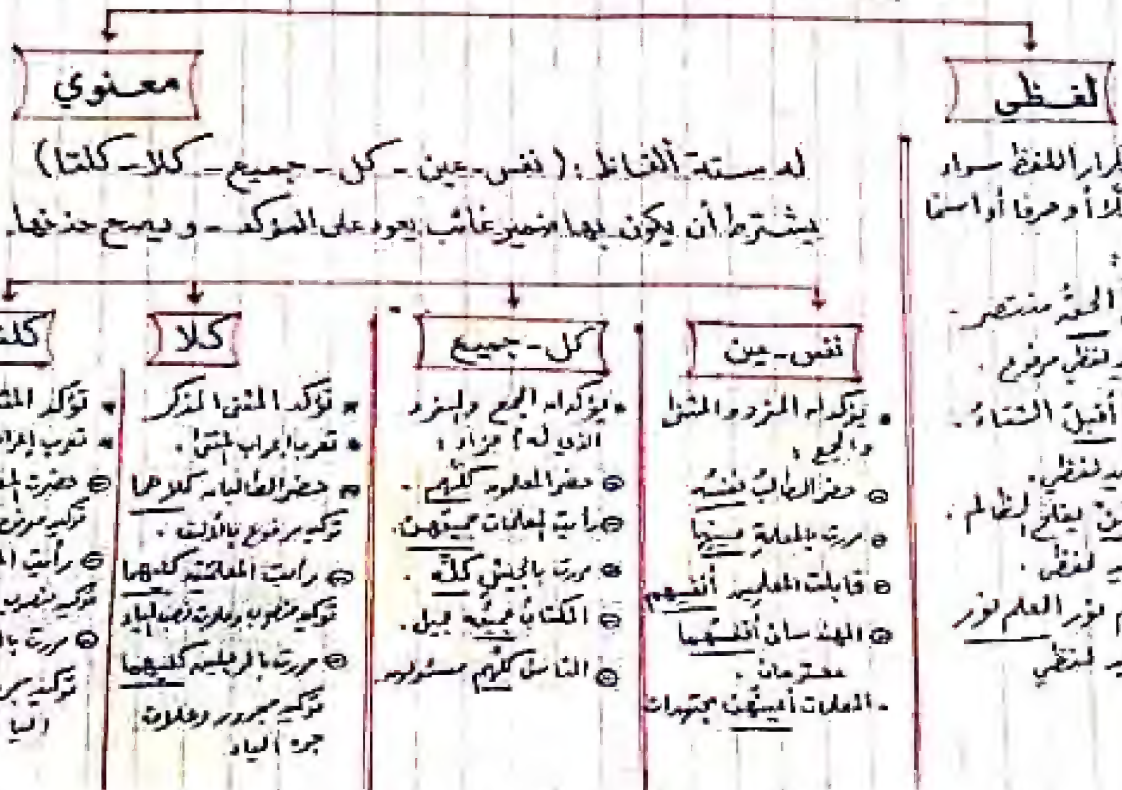 لفظي
تكرار اللفظ سواء
أو حرفا أو اسما
الحق منتصر
لفظي مرفوع .
أقبل الشتاء .
لفظي .
يفلح الظالم .
لفظي .
نور العلم نور
لفظي
معنوي
له ستة ألفاظ : (نفس - عين - كل - جميع - كلا - كلتا)
يشترط أن يكون بها ضمير غائب يعود على المؤكد - ويصح حذفها .
نفس - عين
يؤكدان المفرد والمثنى
والجمع :
حضر الطالب نفسه
مررت بالمعلمة عينها
قابلت المعلمين أنفسهم
المهندسان أنفسهما
محترمان .
- المعلمات أعينهن مجتهدات
كل - جميع
* يؤكدان الجمع والمفرد
الذي له أجزاء :
حضر المعلمون كلهم .
رأيت المعلمات جميعهن .
مررت بالجيش كله .
الكتاب جميعه جميل .
الناس كلهم مسئولون .
كلا
* تؤكد المثنى المذكر
* تعرب إعراب المثنى .
حضر الطالبان كلاهما
توكيد مرفوع بالألف .
رأيت المعلمين كليهما
توكيد منصوب وعلامة نصبه الياء
مررت بالرجلين كليهما
توكيد مجرور وعلامة
جره الياء
* تؤكد
* تعرب
حضرت
توكيد
رأيت
توكيد منصوب
مررت
توكيد